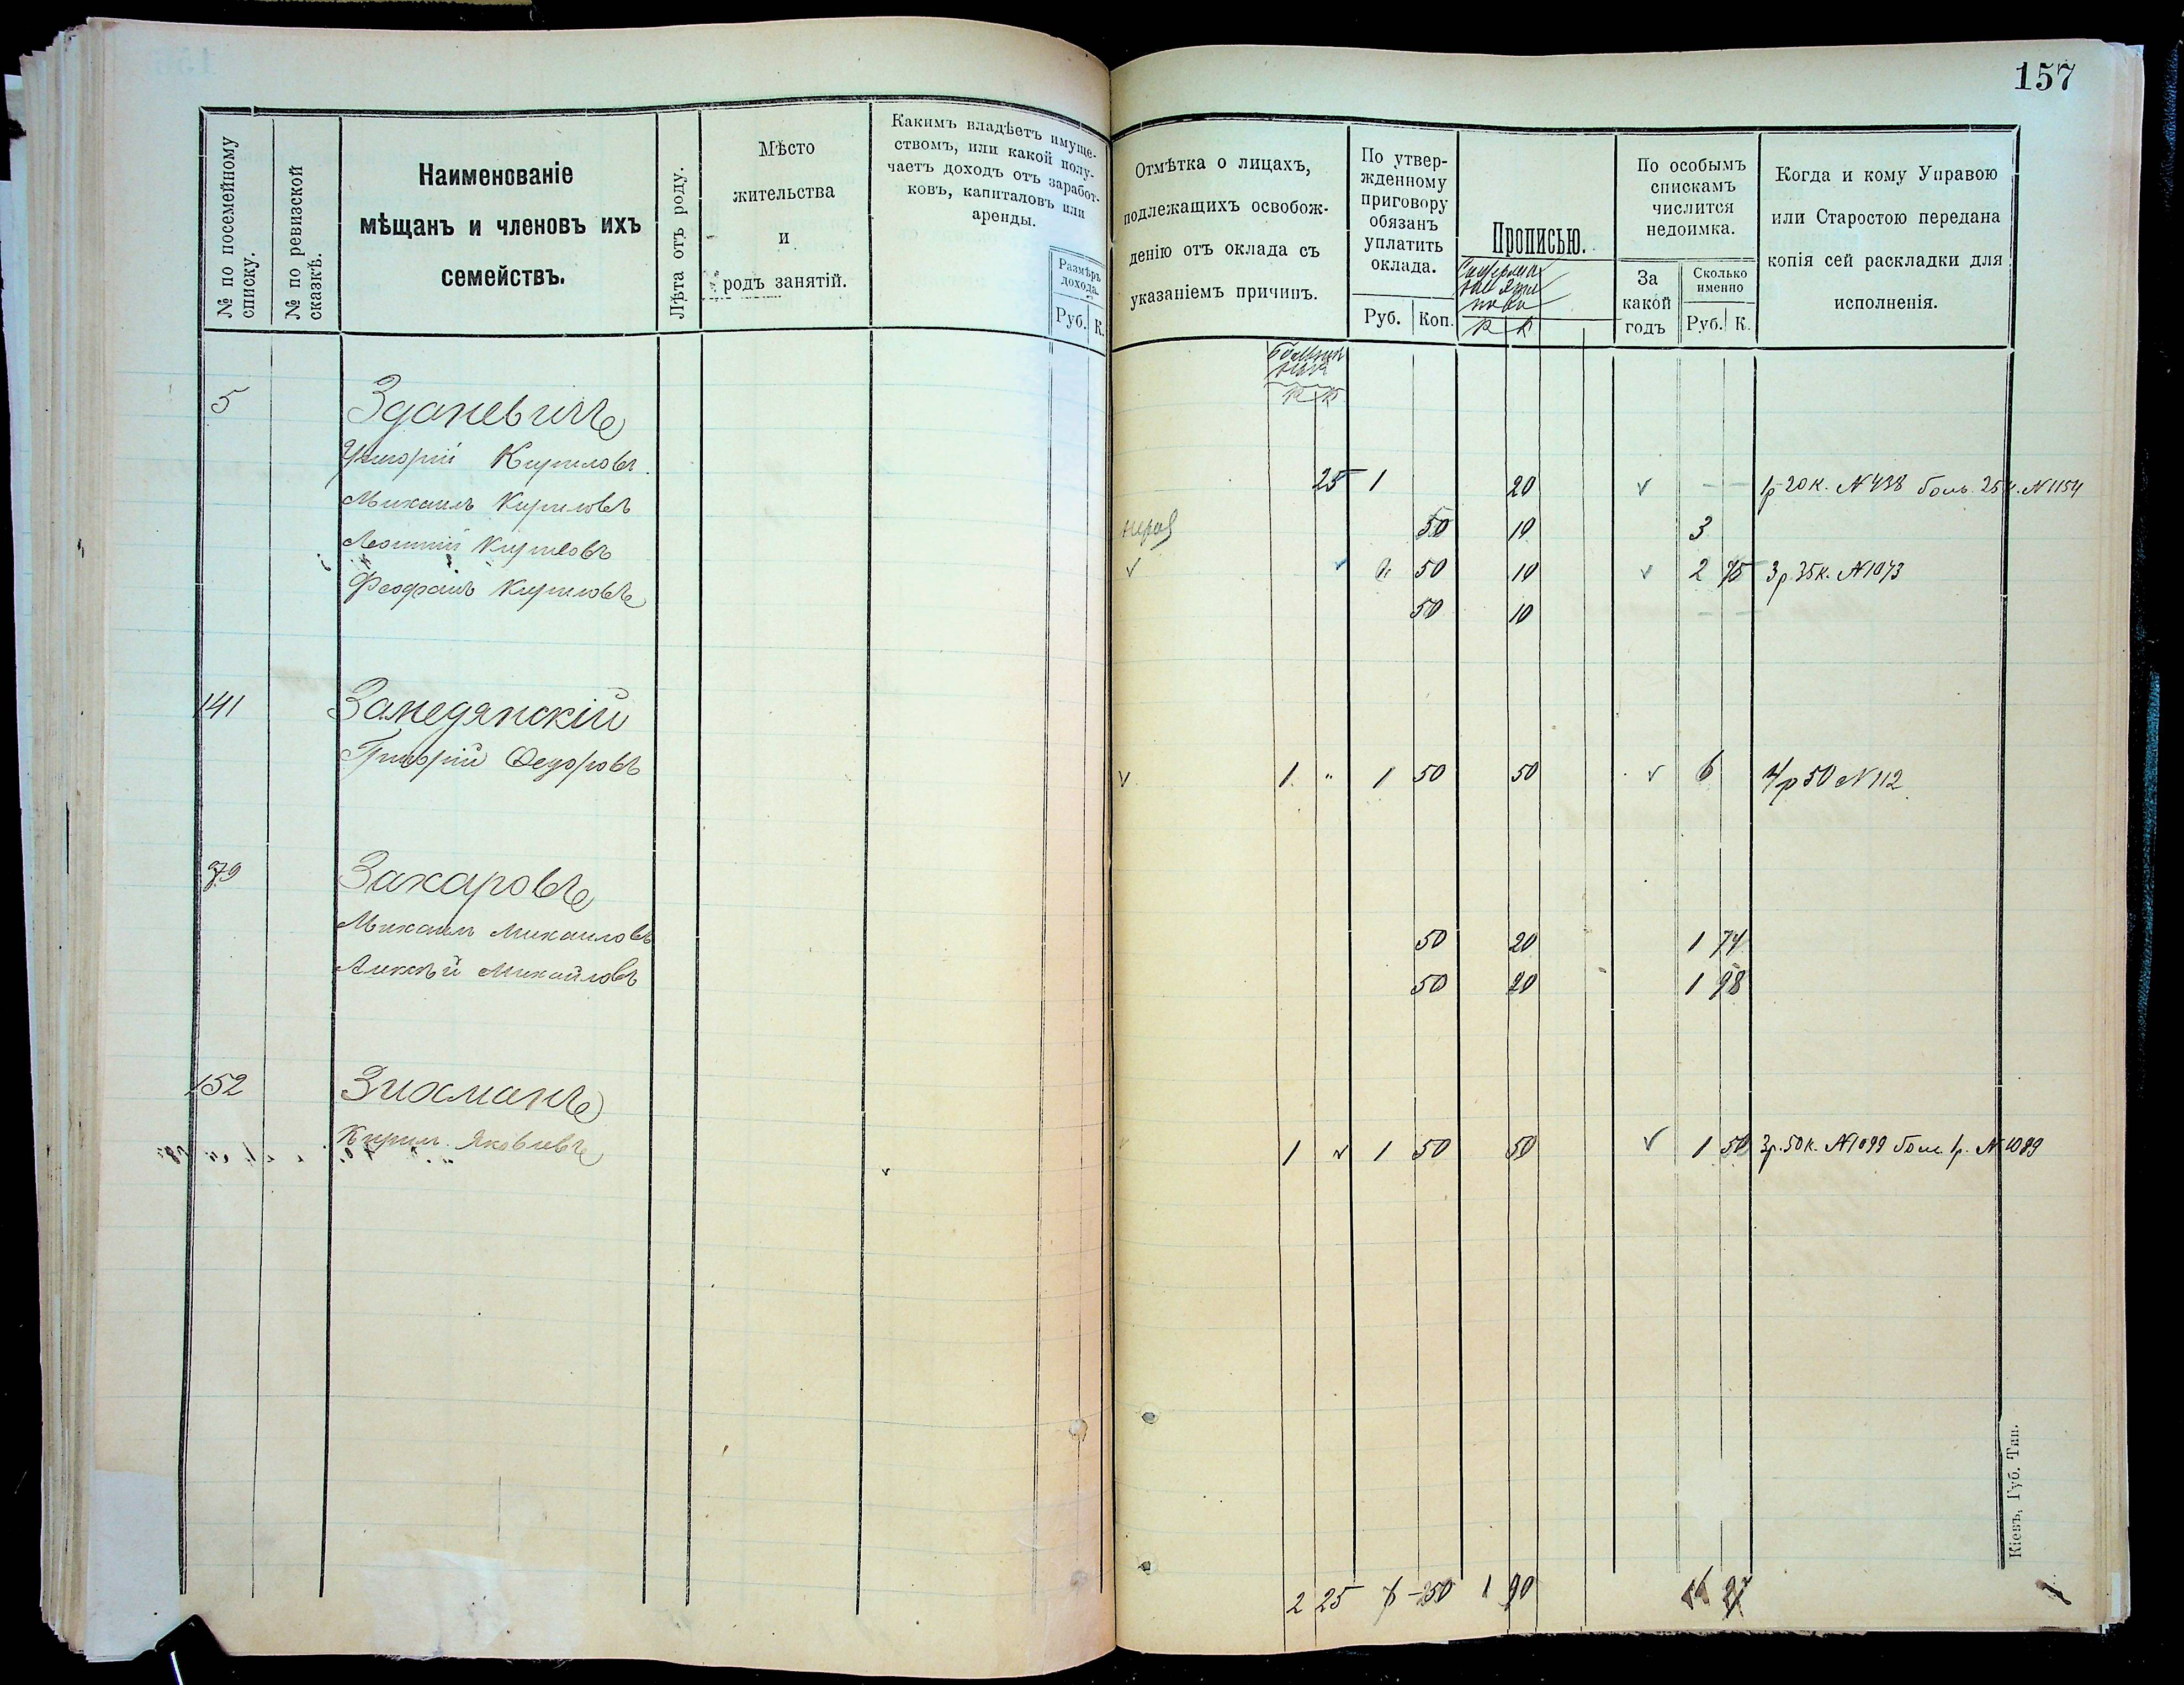 157
№ по посемейному списку.
№ по ревизской сказкѣ.
Наименованіе
мѣщанъ и членовъ ихъ
семействъ.
Лѣта отъ роду.
Мѣсто
жительства
и
родъ занятій.
Какимъ владѣетъ имуще-
ствомъ, или какой полу-
чаетъ доходъ отъ заработ-
ковъ, капиталовъ или
аренды.
Размѣръ
дохода.
Руб. К.
Отмѣтка о лицахъ,
подлежащихъ освобож-
денію отъ оклада съ
указаніемъ причинъ.
По утвер-
жденному
приговору
обязанъ
уплатить
оклада.
Руб. Коп.
Прописью.
По особымъ
спискамъ
числится
недоимка.
За
какой
годъ
Сколько
именно
Руб. К.
Когда и кому Управою
или Старостою передана
копія сей раскладки для
исполненія.
Р К
5 Зданевичъ
Григорій Кириловъ 25 1 20 1р 20к. N438 боль. 25к. N1154
Михаилъ Кириловъ 50 10 3
Леонтій Кириловъ 50 10 2 75 3р. 35к. N1073
Феофанъ Кириловъ 50 10
141 Замедянскій
Григорій Федоровъ 1 " 1 50 50 6 4р 50 N112
79 Захаровъ
Михаилъ Михаиловъ 50 20 1 74
Алексѣй Михаиловъ 50 20 1 98
152 Зихманъ
Кирил. Яковлевъ 1 1 50 50 1 50 3р. 50к. N1099 бол. 1р. N1089
2 25 50 1 90
Кіевъ, Губ. Тип.